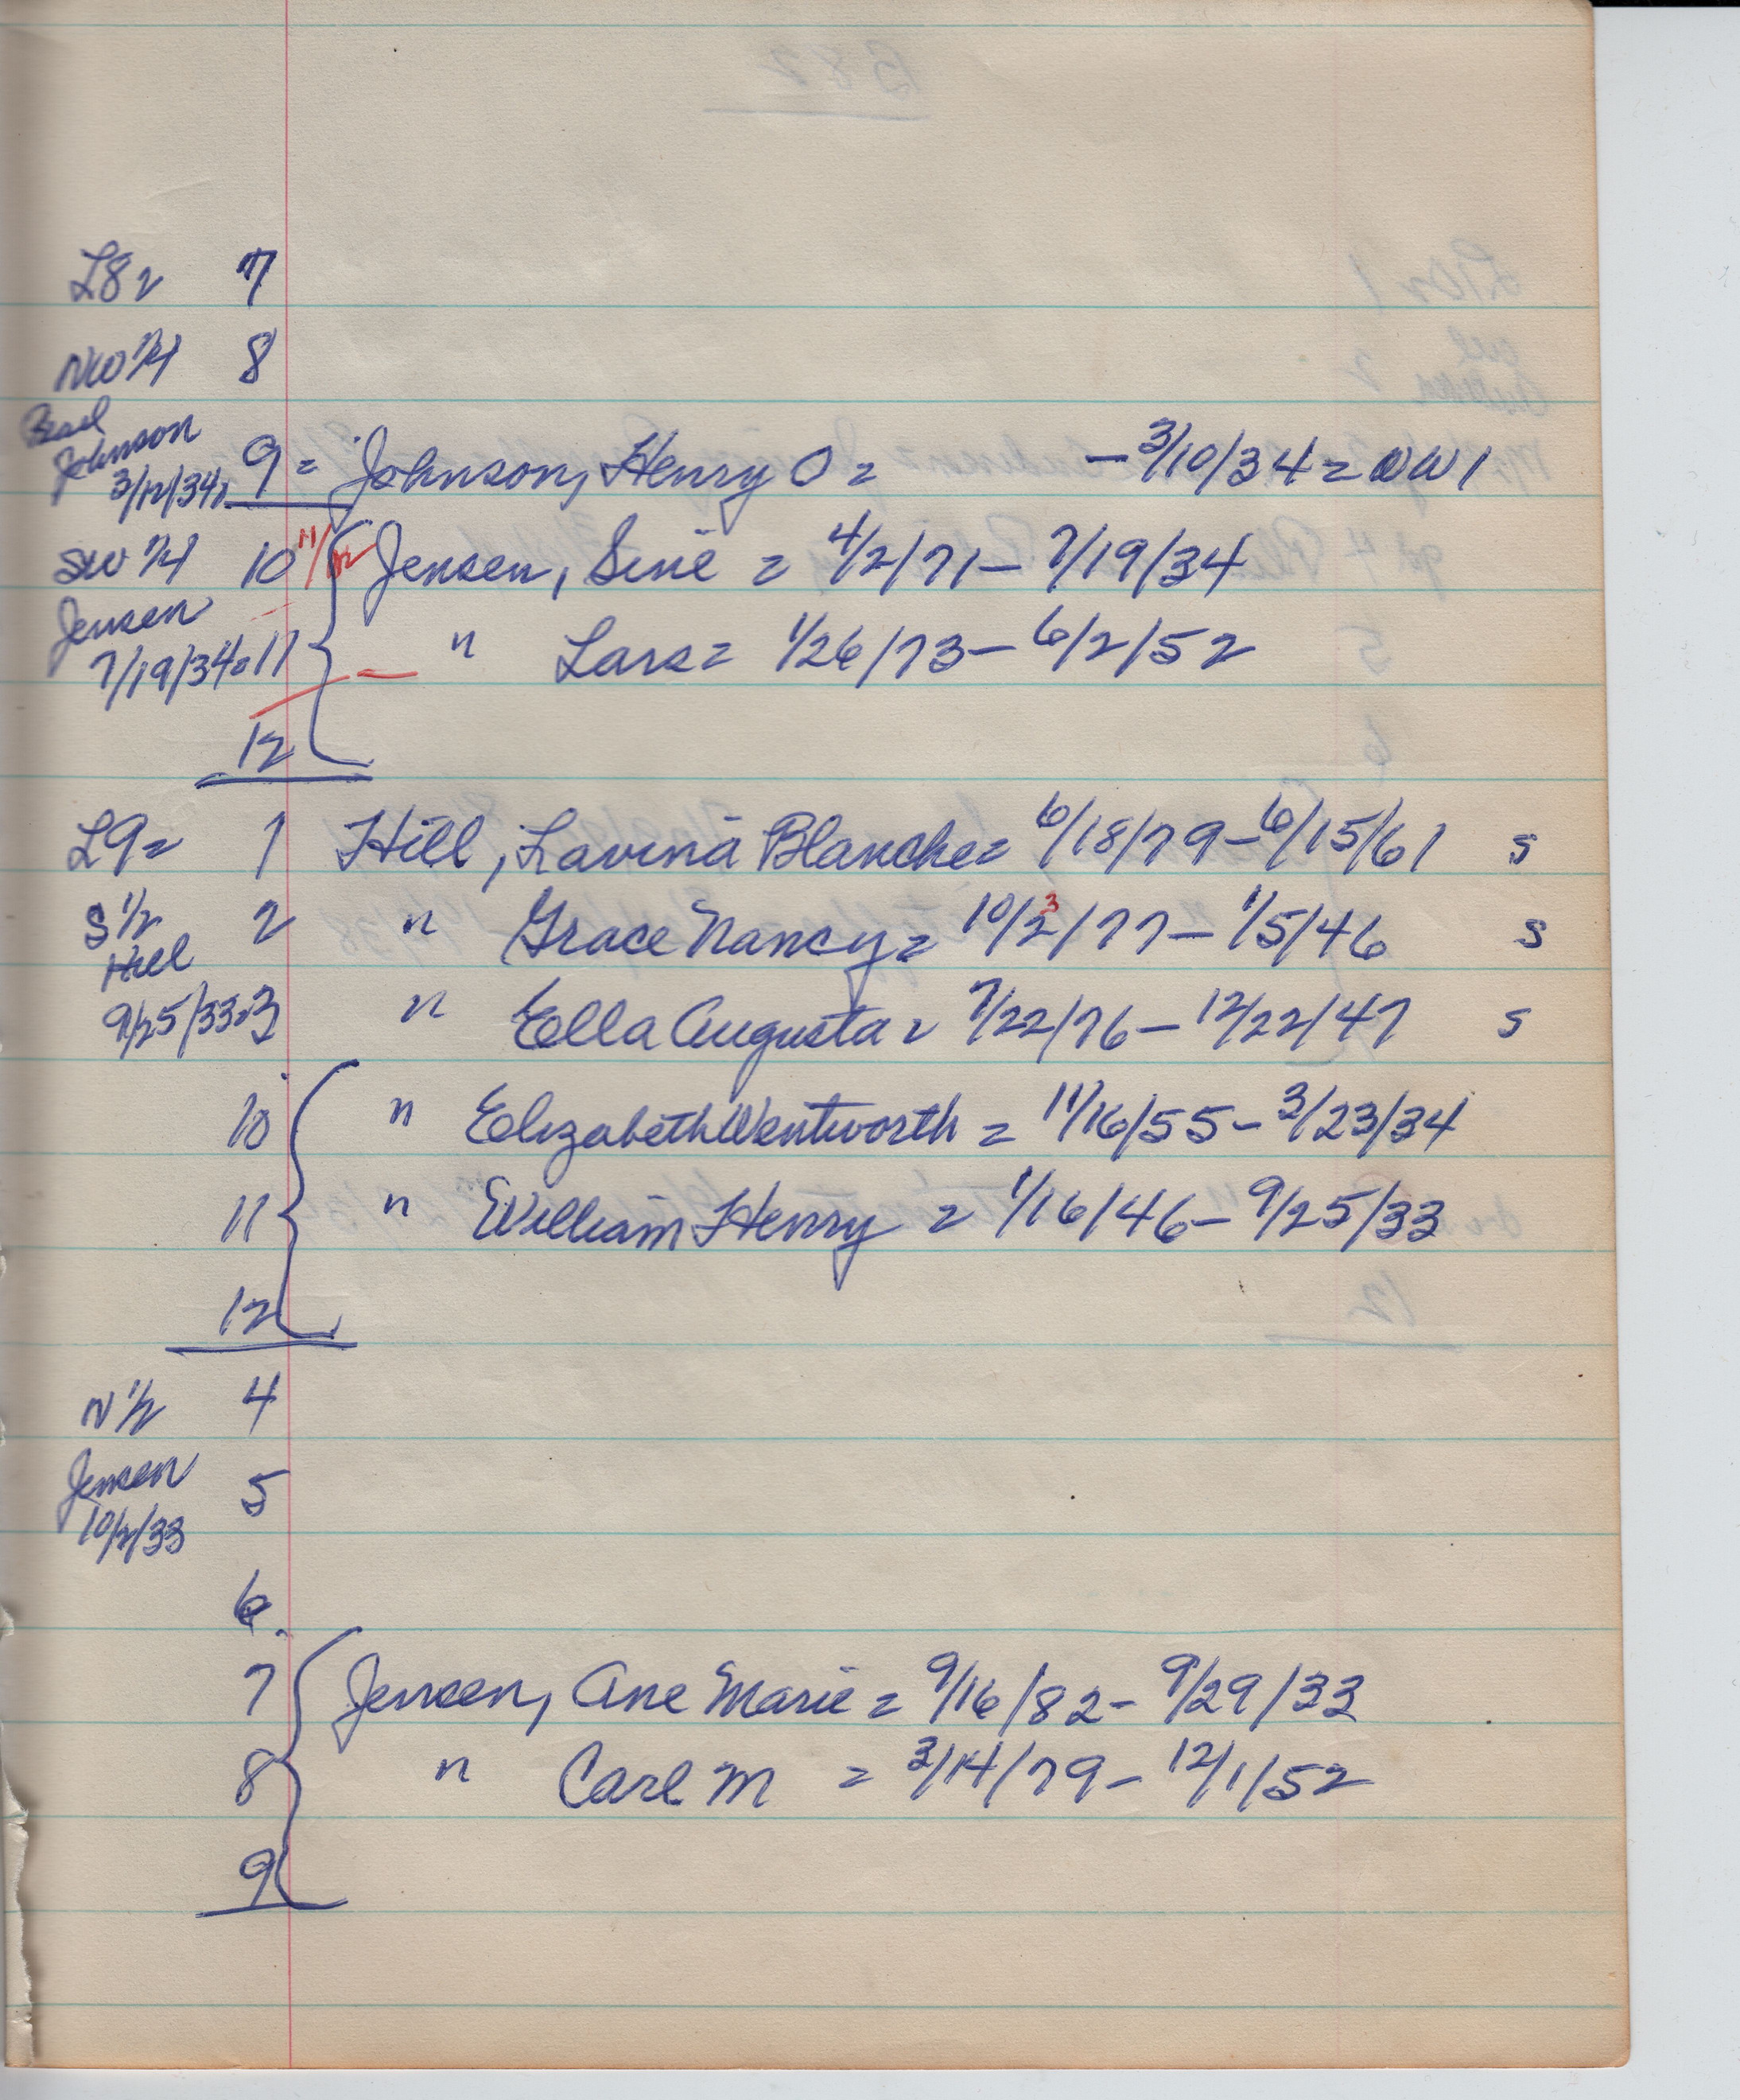 L8 = 7
NW 1/4 8
Johnson
3/12/34 = 9 = Johnson, Henry O = - 3/10/34 = WW1
SW 1/4 10 11/12 Jensen, Sine = 4/2/71 - 7/19/34
Jensen
7/19/34 = 11 " Lars = 1/26/73 - 6/2/52
12
L9 = 1 Hill, Lavina Blanche = 6/18/79 - 6/15/61 S
S 1/2 2 " Grace Nancy = 10/23/77 - 1/5/46 S
Hill
9/25/33 = 3 " Ella Augusta = 7/22/76 - 12/22/47 S
10 " Elizabeth Wentworth = 11/16/55 - 3/23/34
11 " William Henry = 1/16/46 - 9/25/33
12
N 1/2 4
Jensen 5
10/2/33
6
7 Jensen, Ane Marie = 9/16/82 - 9/29/33
8 " Carl M = 3/14/79 - 12/1/52
9